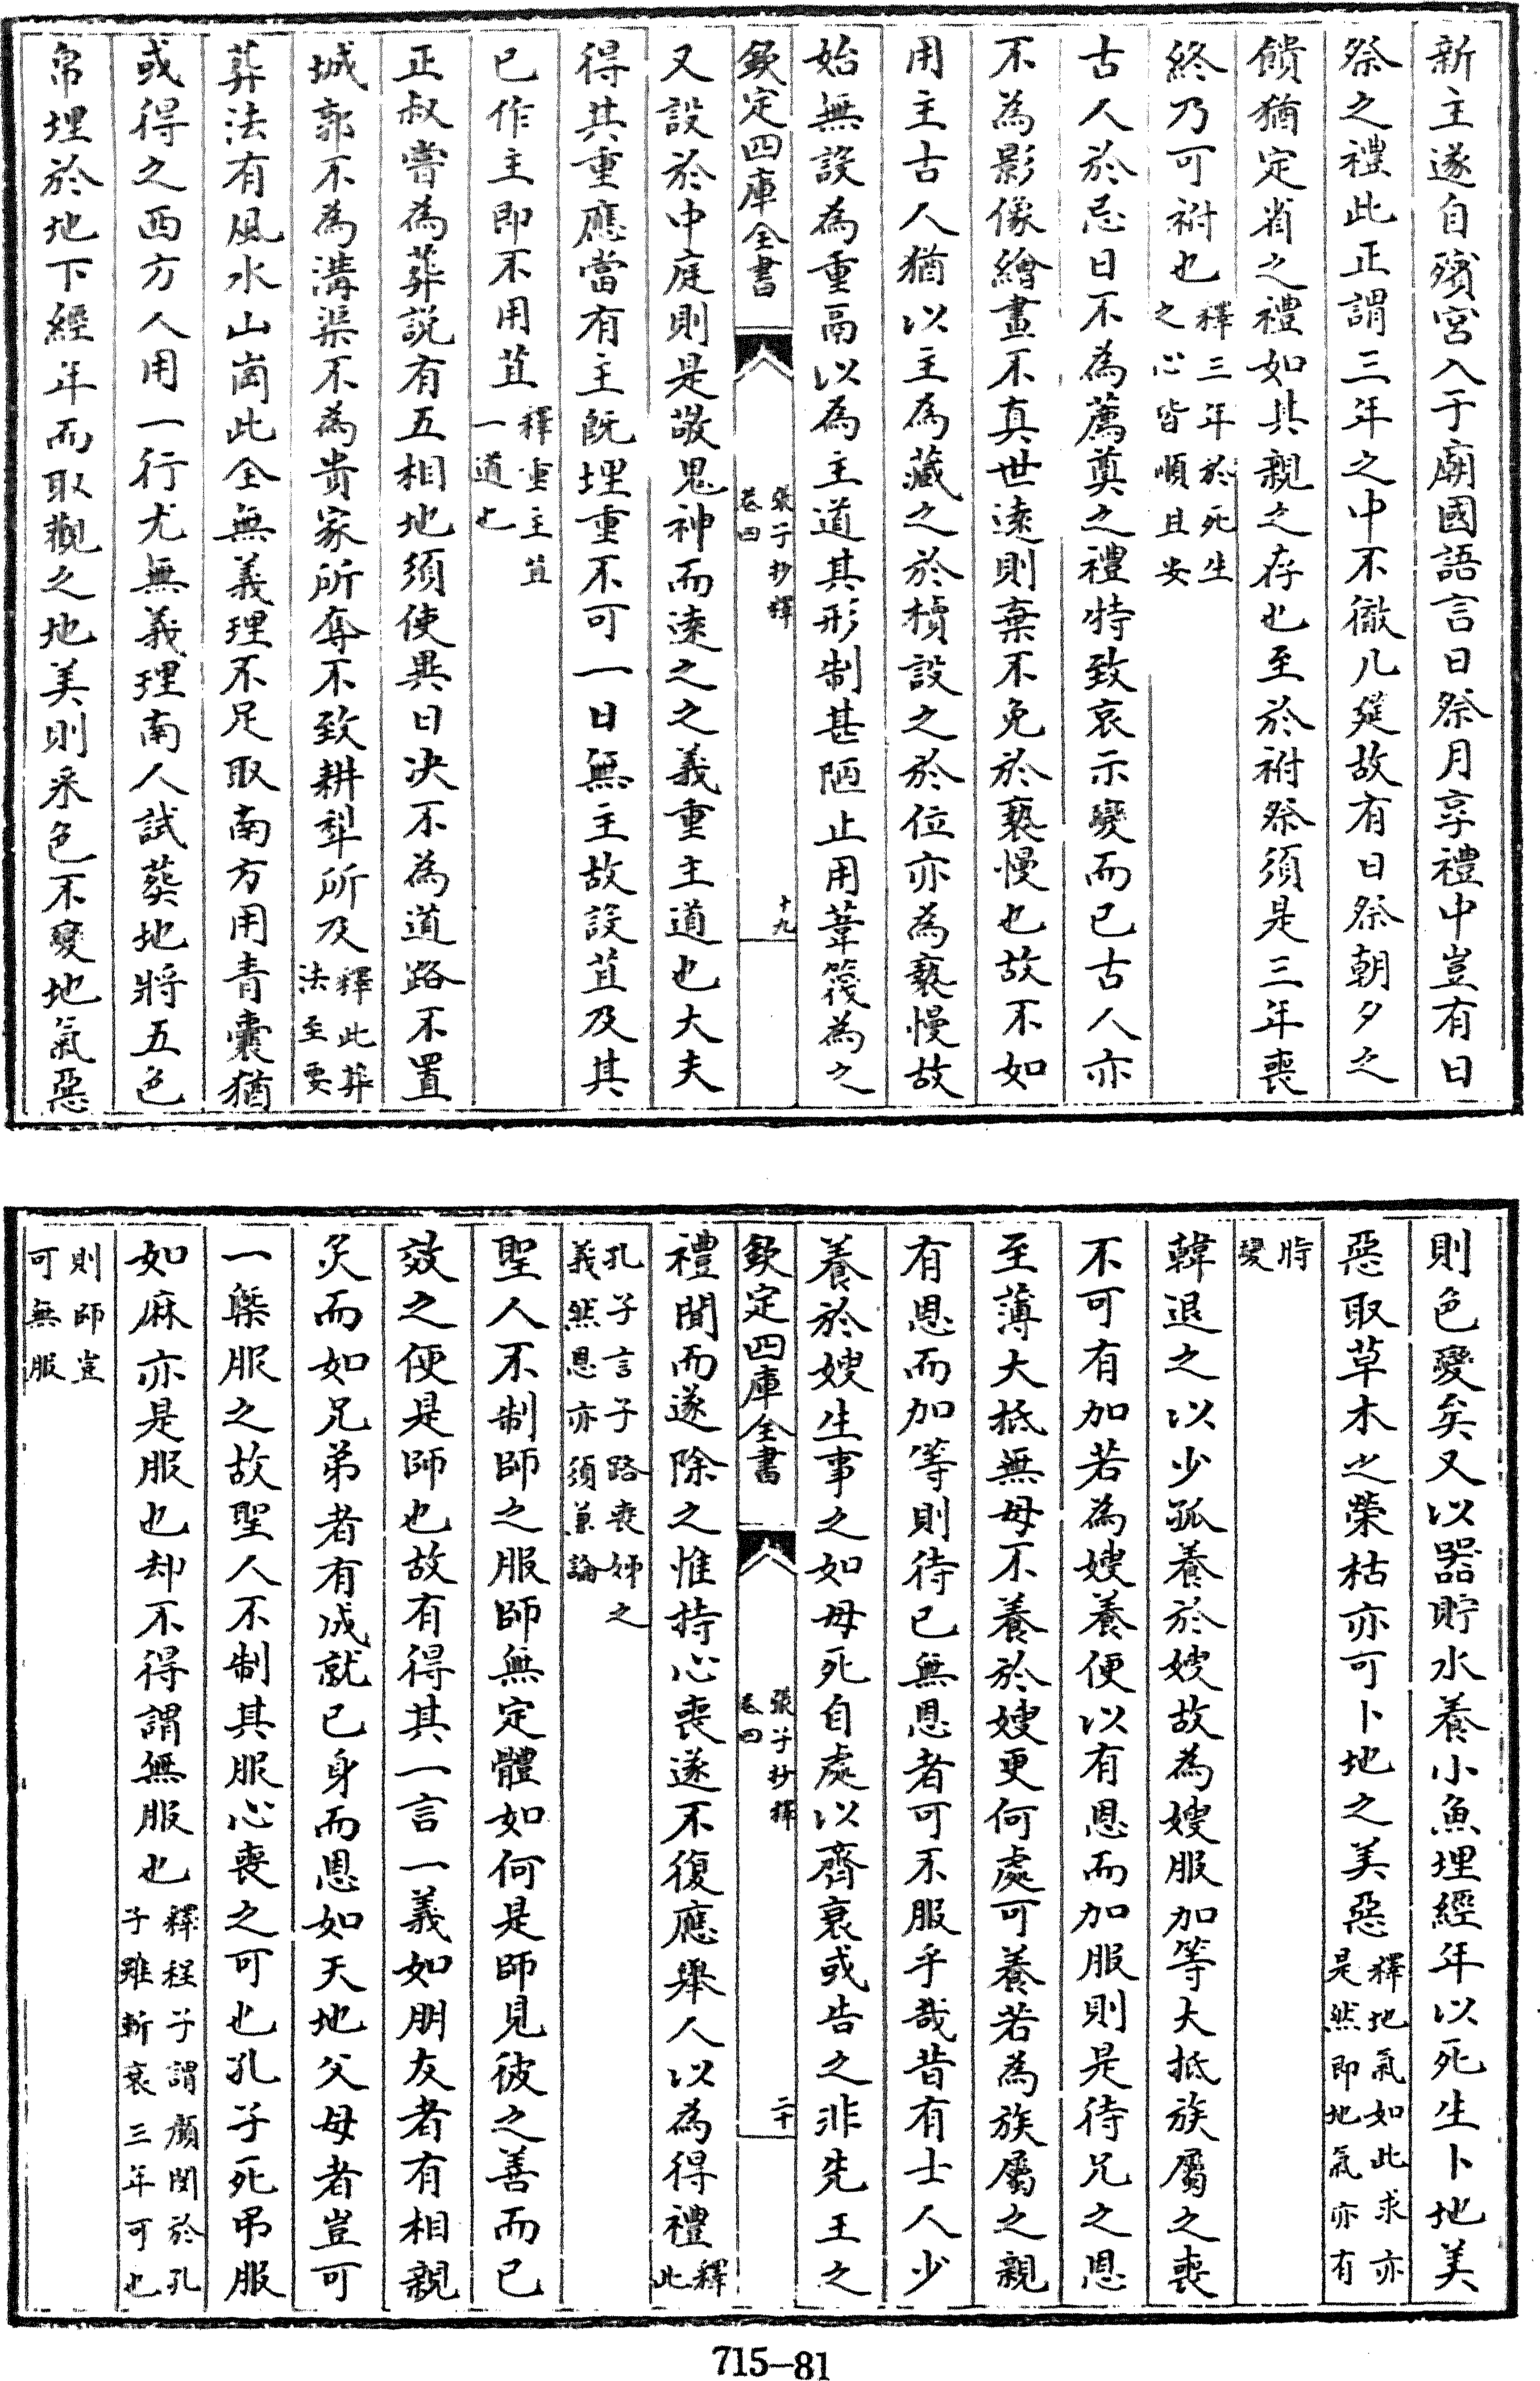 新主遂自殯宮入于廟國語言日祭月享禮中豈有日
祭之禮此正謂三年之中不徹几筵故有日祭朝夕之
饋猶定省之禮如其親之存也至於祔祭須是三年喪
終乃可祔也釋三年於死生之心皆順且安
古人於忌日不為薦奠之禮特致哀示變而已古人亦
不為影像繪畫不真世遠則棄不免於褻慢也故不如
用主古人猶以主為藏之於櫝設之於位亦為褻慢故
始無設為重鬲以為主道其形制甚陋止用葦篾為之
欽定四庫全書
張子抄釋
卷四
十九
又設於中庭則是敬鬼神而遠之之義重主道也大夫
得其重應當有主既埋重不可一日無主故設苴及其
已作主即不用苴釋重主苴一道也
正叔嘗為葬說有五相地須使異日决不為道路不置
城郭不為溝渠不為貴家所奪不致耕犁所及釋此葬法至要
葬法有風水山崗此全無義理不足取南方用青囊猶
或得之西方人用一行尤無義理南人試葬地將五色
帛埋於地下經年而取觀之地美則采色不變地氣惡
則色變矣又以器貯水養小魚埋經年以死生卜地美
惡取草木之榮枯亦可卜地之美惡釋地氣如此求亦是然即地氣亦有
時變
韓退之以少孤養於嫂故為嫂服加等大抵族屬之喪
不可有加若為嫂養便以有恩而加服則是待兄之恩
至薄大抵無母不養於嫂更何處可養若為族屬之親
有恩而加等則待已無恩者可不服乎哉昔有士人少
養於嫂生事之如母死自處以齊衰或告之非先王之
欽定四庫全書
張子抄釋
卷四
二十
禮聞而遂除之惟持心喪遂不復應舉人以為得禮釋此
孔子言子路喪姊之義然恩亦須兼論
聖人不制師之服師無定體如何是師見彼之善而已
效之便是師也故有得其一言一義如朋友者有相親
炙而如兄弟者有成就已身而恩如天地父母者豈可
一槩服之故聖人不制其服心喪之可也孔子死弔服
如麻亦是服也却不得謂無服也釋程子謂顏閔於孔子雖斬衰三年可也
則師豈可無服
715–81